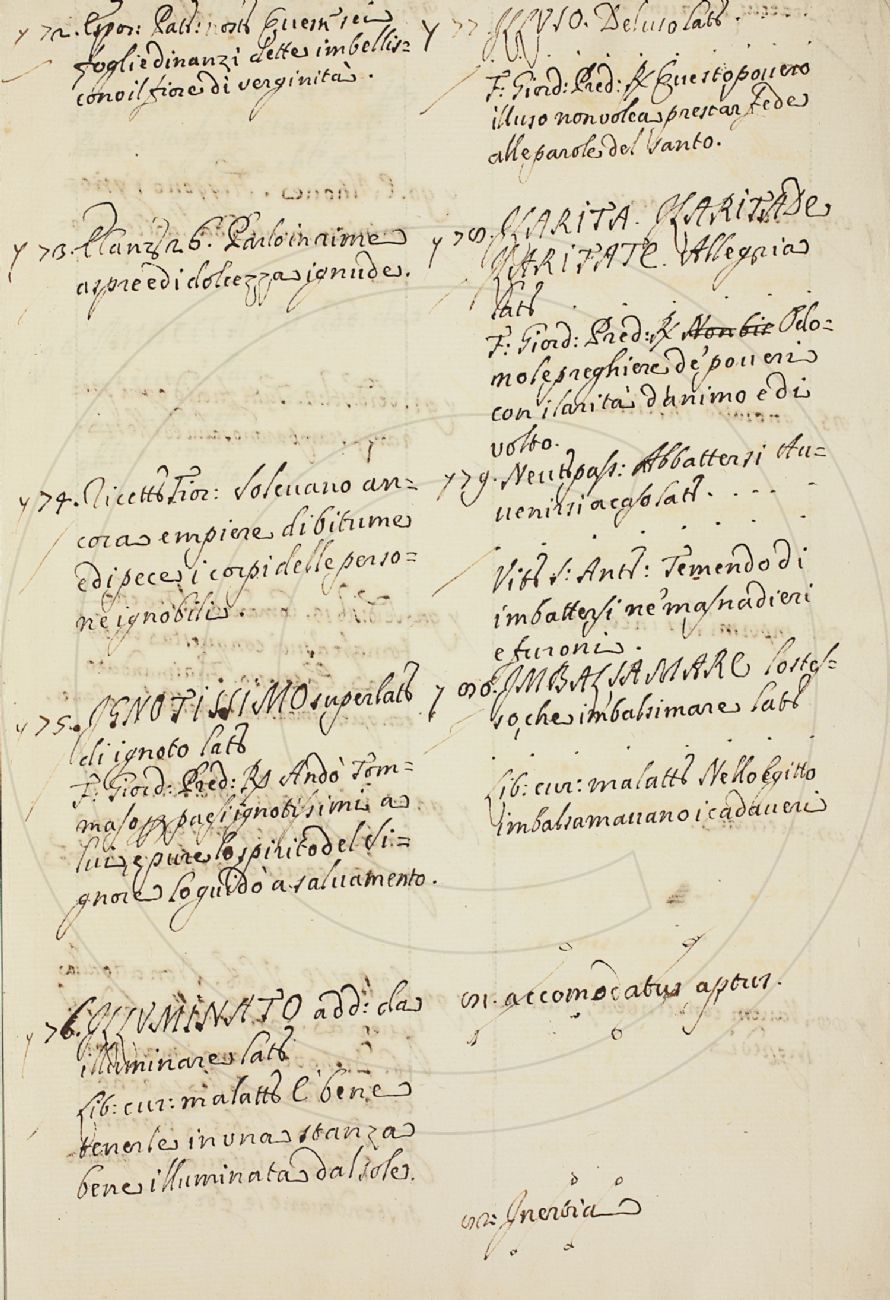 72. Espos: Patr: nost: Queste sei
foglie dinanzi dette imbellis=
cono il fiore di verginità.
73. E Canz: 26. Parlo in rime
aspre e di dolcezza ignude.
74. Ricett: Fior: Solevano an=
cora empiere di bitume
e di pece i corpi delle perso=
ne ignobili.
75. IGNOTISSIMO superlat:
di ignoto lat:
F: Giord: Pred: R: Andò Tom=
maso p paesi ignotissimi a
lui, e pure lo spirito del Si=
gnore lo guidò a salvamento.
76. ILLUMINATO add: da
illuminare lat:
Lib: cur: malatt: E' bene
tenerle in una stanza
bene illuminata dal sole.
77. ILLVSO. Deluso lat:
F: Giord: Pred: R: Questo povero
illuso non volea prestar fede
alle parole del Santo.
78. ILARITA. ILARITADE
ILARITATE. Allegria
lat:
F: Giord: Pred: R: Non bie Odo=
no le preghiere de' poveri
con ilarità d'animo e di
volto.
79. Neut: pass: Abbattersi Av=
venirsi a caso lat:
Vit: S: Ant: Temendo di
imbattersi ne' masnadieri
e furoni.
80. IMBALSAMARE lo stes=
so, che imbalsimare lat:
Lib: cur: malatt: Nello Egitto
imbalsamavano i cadaveri
81. accomodatus aptus.
82: Inertia